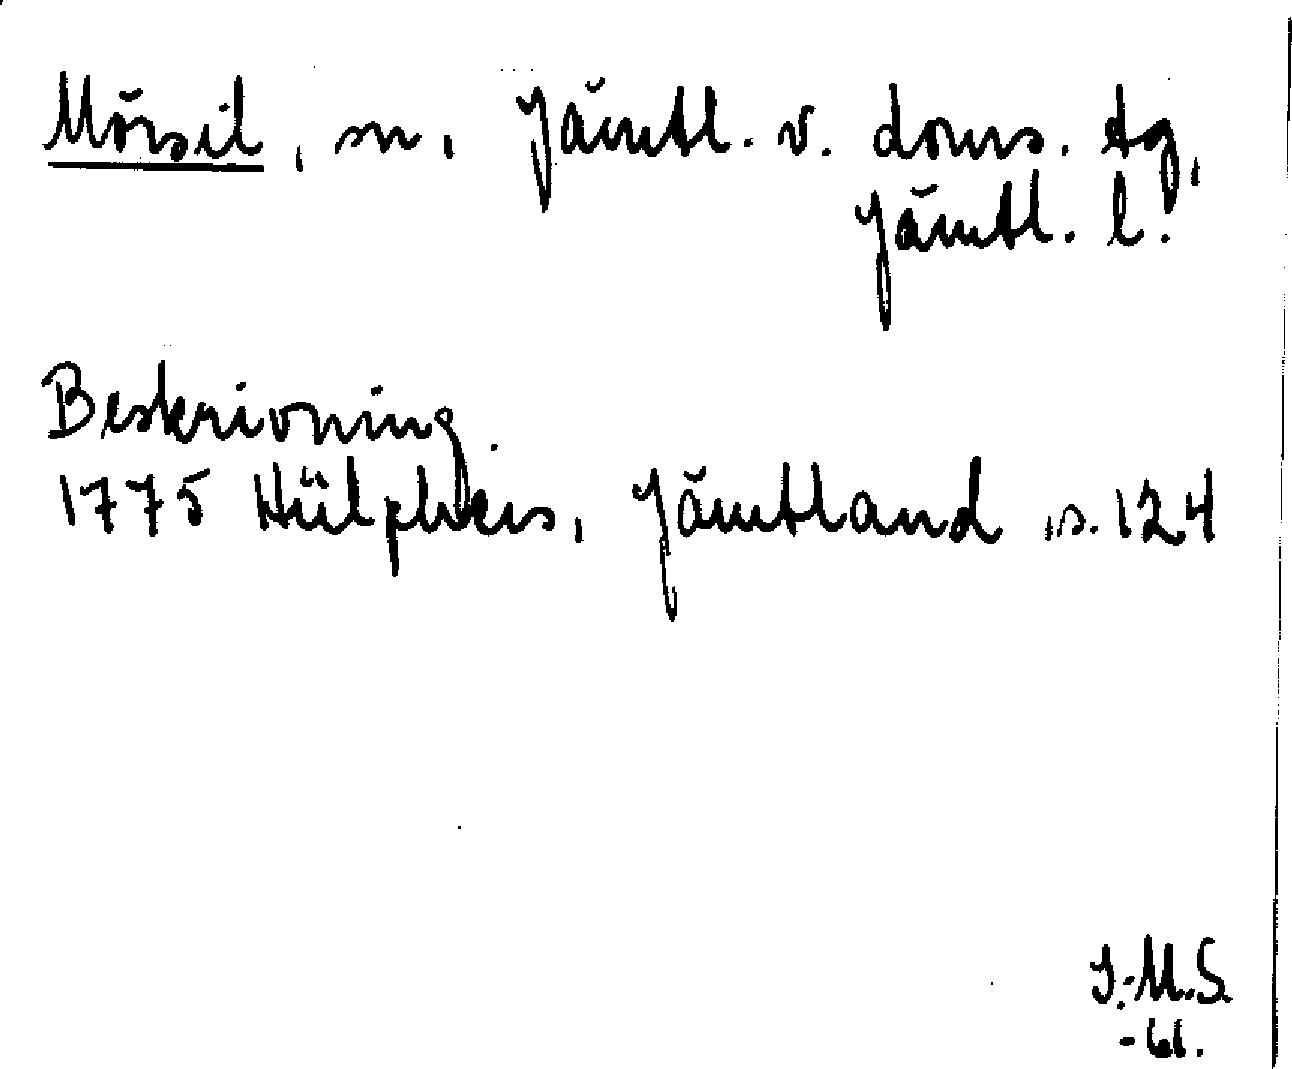 Mörsil, sn, Jämtl. v. doms. tg,
Jämtl. l.
Beskrivning
1775 Hülphers, Jämtland, s. 124
I.-M.S.
-61.